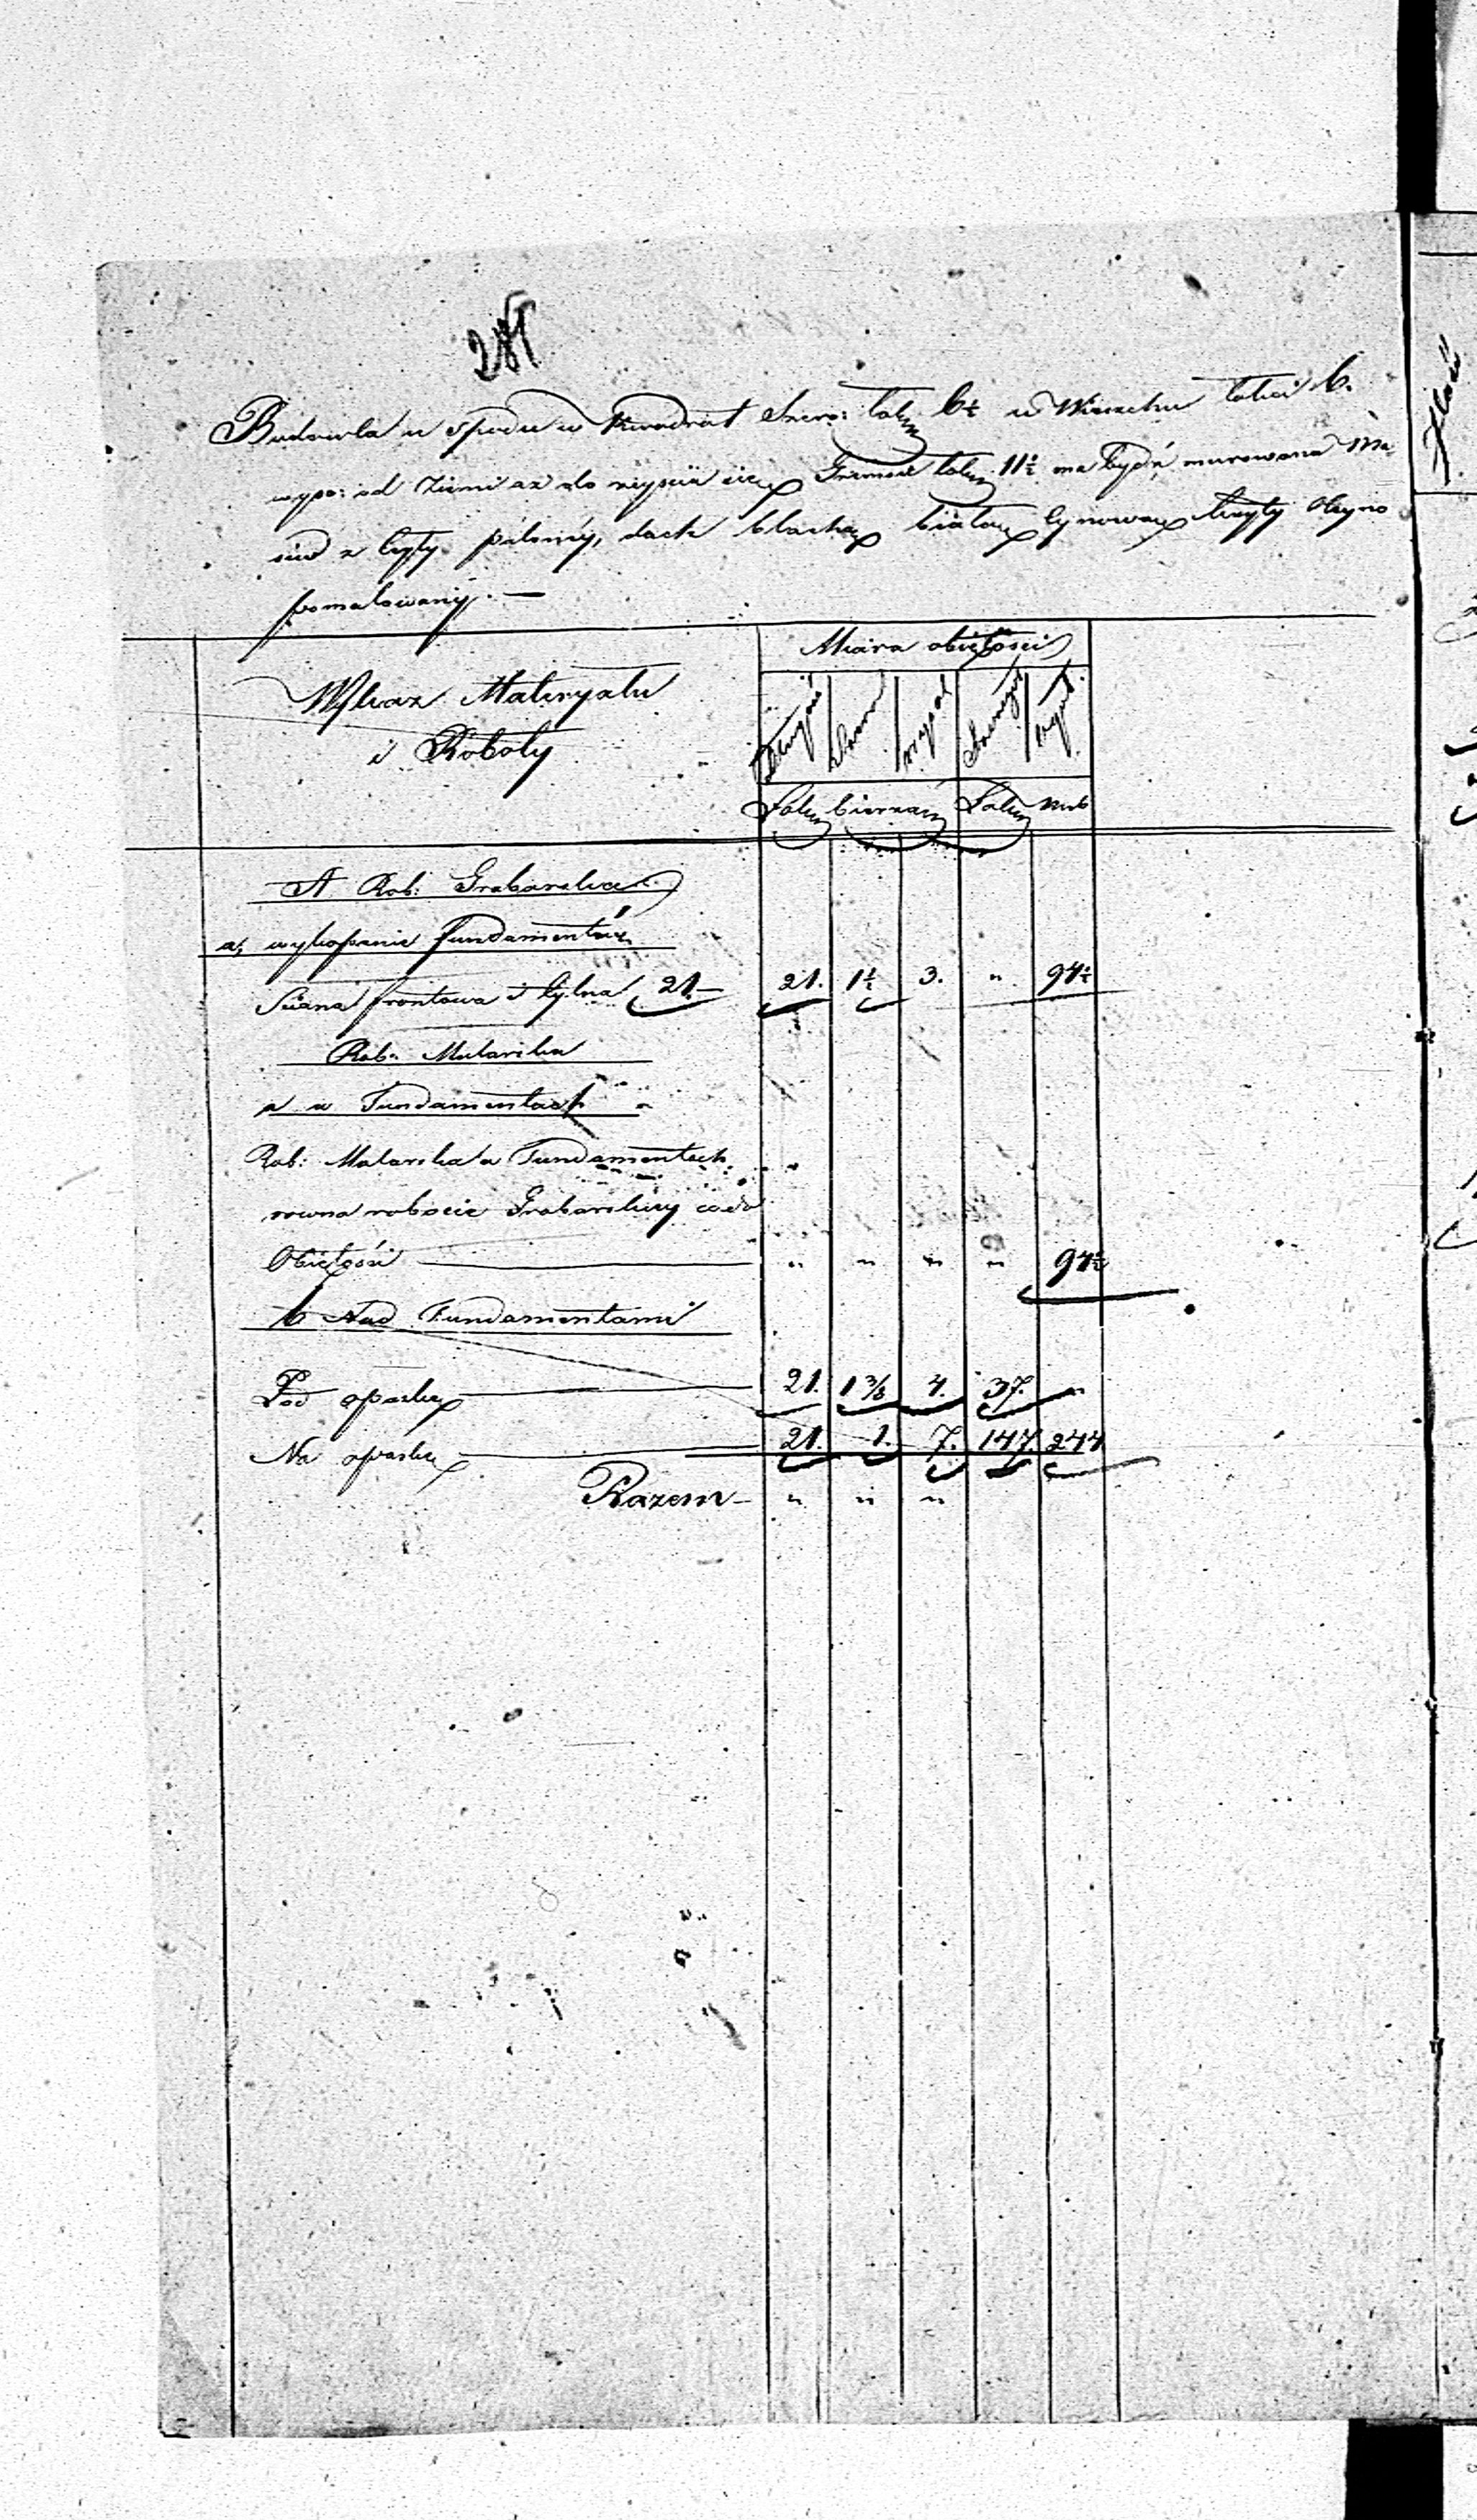 Budowla u spodu w Kwadrat Szero: łokci 6½ w Wierzchu łokci 6.
wyso: od Ziemi aż do zejscia się łokci 11½ ma bydź murowana Ma
siw z Cegły palonéy, dach blachą białą Cynową kryty Oleyno
pomalowany. —
Wykaz Materyału
i Roboty
Miara obiętosci
Długość
wysok
Łokcy bierzący
Łokcy kub
A Rob: Grabarska
a, wykopanie fundamentów
Sciana frontowa i tylna 21 — 21. 1½ 3. " 94½
Rob: Mularska
a w Fundamentach
Rob: Mularska w Fundamentach
rowna robocie Grabarskiéy co do
Obiętości " " " " 94½
b Nad Fundamentami
Pod opaskę 21. 1 3/8 4. 37. "
Na opaskę 21. 1. 7. 147 244
Razem — " " "